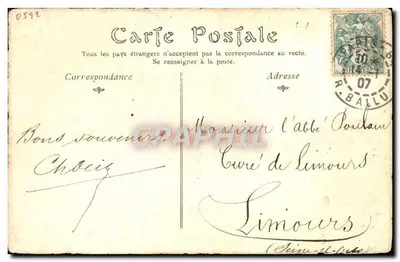 0592
Carte Postale
Tous les pays étrangers n'acceptent pas la correspondance au recto.
Se renseigner à la poste.
Correspondance
Adresse
PARIS
10
07
R. BALLU
Bons souvenirs
Monsieur l'abbé Poulain
Curé de Limours
Limours
(Seine-et-Oise)
CARTORUM